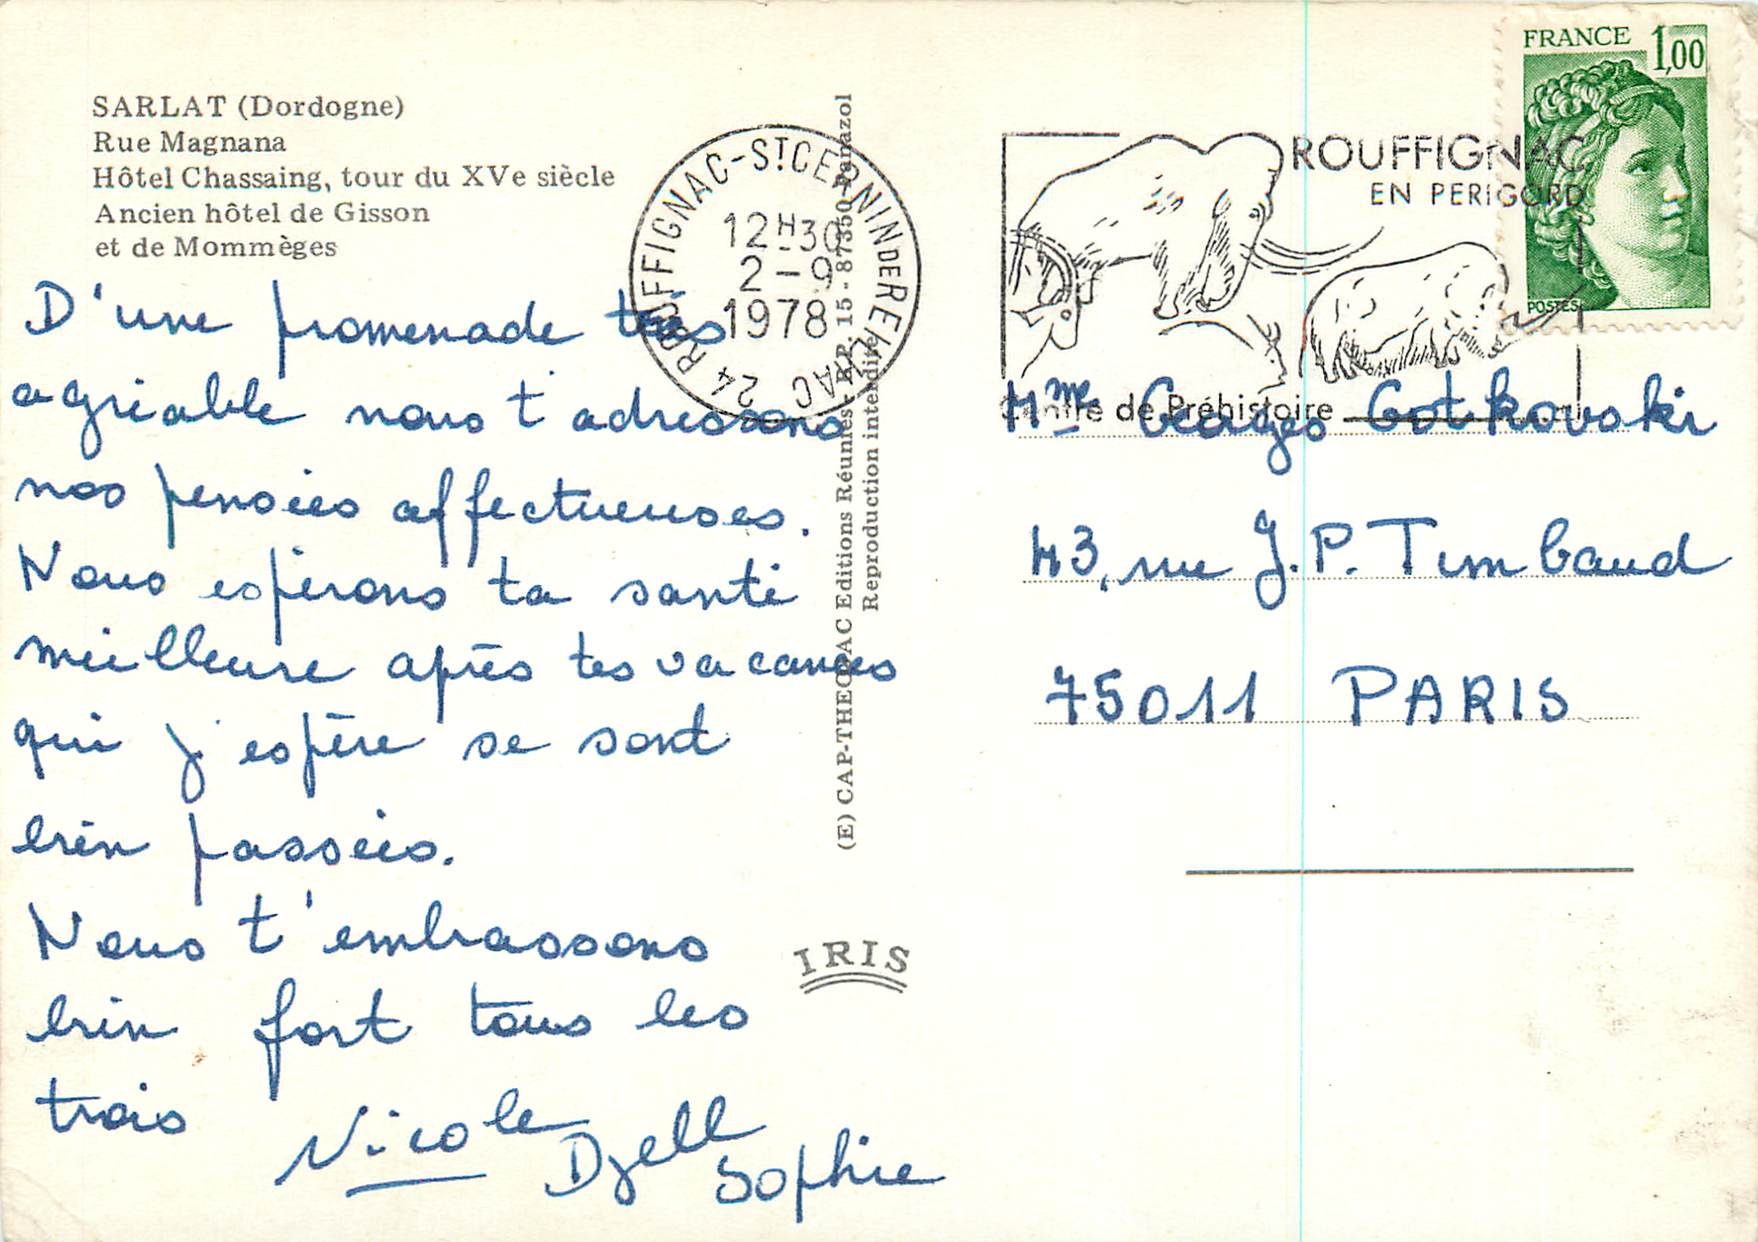 SARLAT (Dordogne)
Rue Magnana
Hôtel Chassaing, tour du XVe siècle
Ancien hôtel de Gisson
et de Mommèges
D'une promenade très
agréable nous t'adressons
nos pensées affectueuses.
Nous espérons ta santé
meilleure après tes vacances
qui j'espère se sont
bien passées.
Nous t'embrassons
bien fort tous les
trois
Nicole
Djell
Sophie
(E) CAP-THEOJAC Editions Réunies - R.P. 15 - 87350 Panazol
Reproduction interdite
IRIS
24 ROUFFIGNAC-ST CERNIN DE REILHAC
12H30
2-9
1978
ROUFFIGNAC
EN PERIGORD
Centre de Préhistoire
FRANCE 1,00
POSTES
Mme Georges Gotkovski
43, rue J.P. Timbaud
75011 PARIS